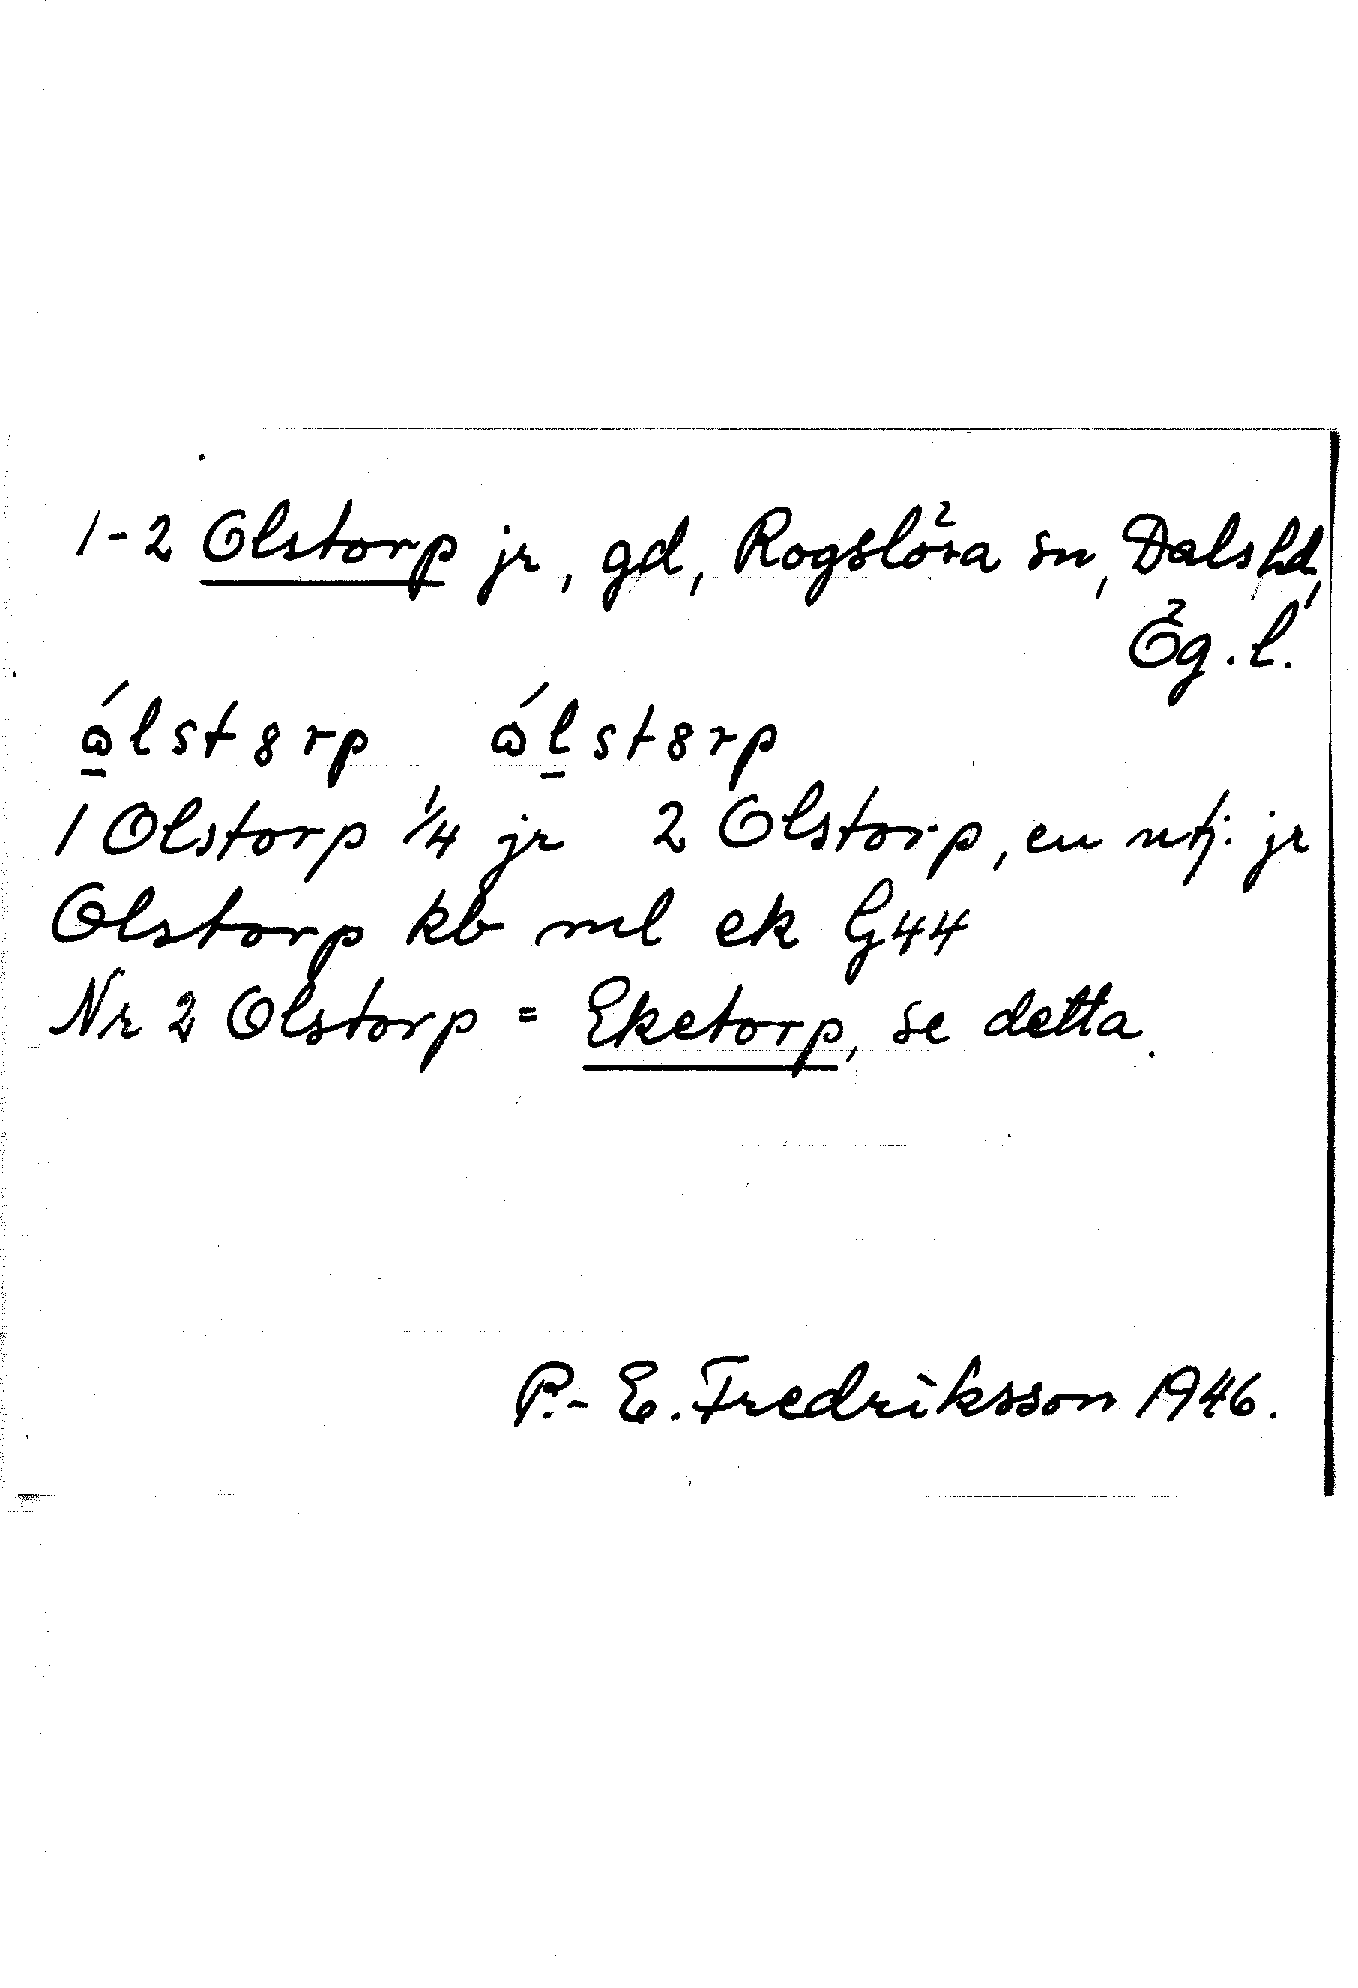 1-2 Olstorp jr, gd, Rogslösa sn, Dals hd,
Ög.l.
ώlst8rp ώlst8rp
1 Olstorp 1/4 jr 2 Olstorp, en utj. jr
Olstorp kb ml ek G44
Nr 2 Olstorp = Eketorp, se detta.
P.-E. Fredriksson 1946.